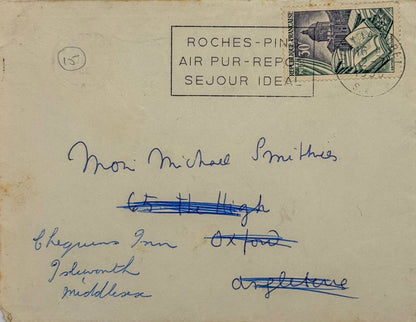 15
ROCHES-PIN
AIR PUR-REPO
SEJOUR IDEAL
REPUBLIQUE FRANÇAISE
30F
Monr Michael Smithies
65 the High
Oxford
Angleterre
Chequers Inn
Isleworth
Middlesex